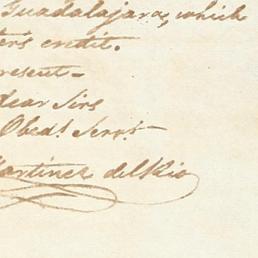 Guadalajara, which
ters credit.
resent —
dear Sirs
Obedt. Servt.
artinez del Rio